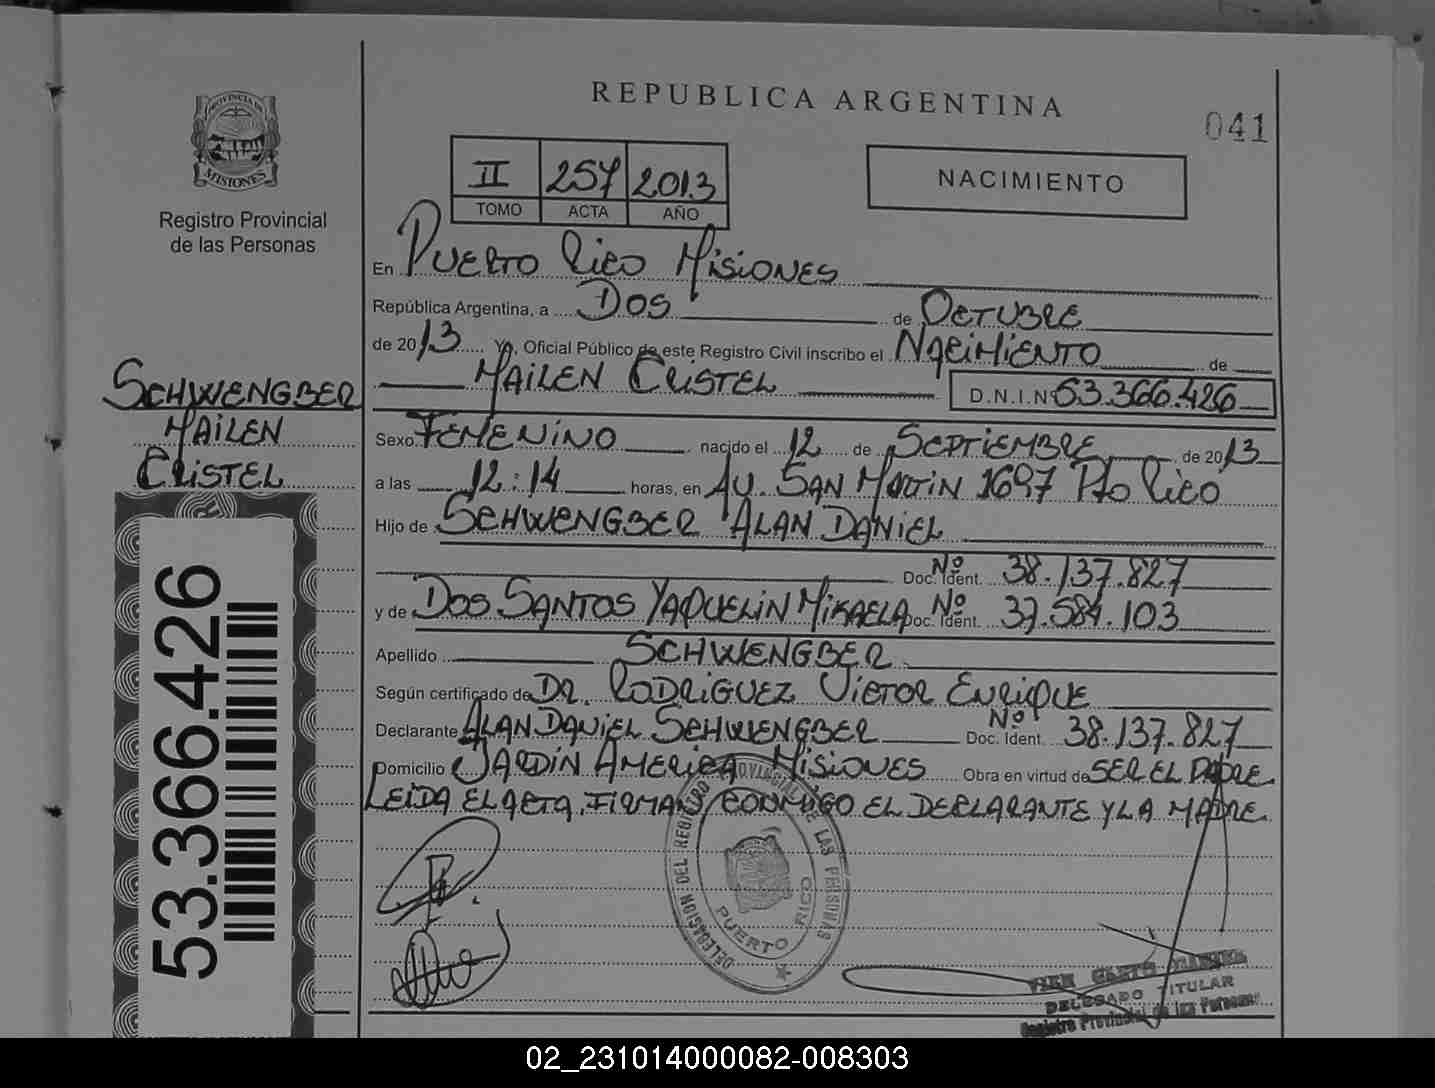 REPUBLICA ARGENTINA
041
PROVINCIA DE MISIONES
Registro Provincial
de las Personas
II 257 2013
TOMO ACTA AÑO
NACIMIENTO
En Puerto Rico Misiones
República Argentina, a Dos de Octubre
de 2013 Yo, Oficial Público de este Registro Civil inscribo el Nacimiento de
Mailen Cristel D.N.I.Nº 53.366.426
Schwengber
Mailen
Cristel
Sexo Femenino nacido el 12 de Septiembre de 2013
a las 12:14 horas, en Av. San Martin 1697 Pto Rico
Hijo de Schwengber Alan Daniel
Doc. Ident. Nº 38.137.827
y de Dos Santos Yaquelin Mikaela Doc. Ident. Nº 37.584.103
Apellido Schwengber
Según certificado de Dr. Rodriguez Victor Enrique
Declarante Alan Daniel Schwengber Doc. Ident. Nº 38.137.827
Domicilio Jardin America Misiones Obra en virtud de ser el Padre
Leida el acta, firman conmigo el declarante y la madre.
53.366.426
DELEGACION DEL REGISTRO PROVINCIAL DE LAS PERSONAS
PUERTO RICO
DELEGADO TITULAR
Registro Provincial de las Personas
02_231014000082-008303